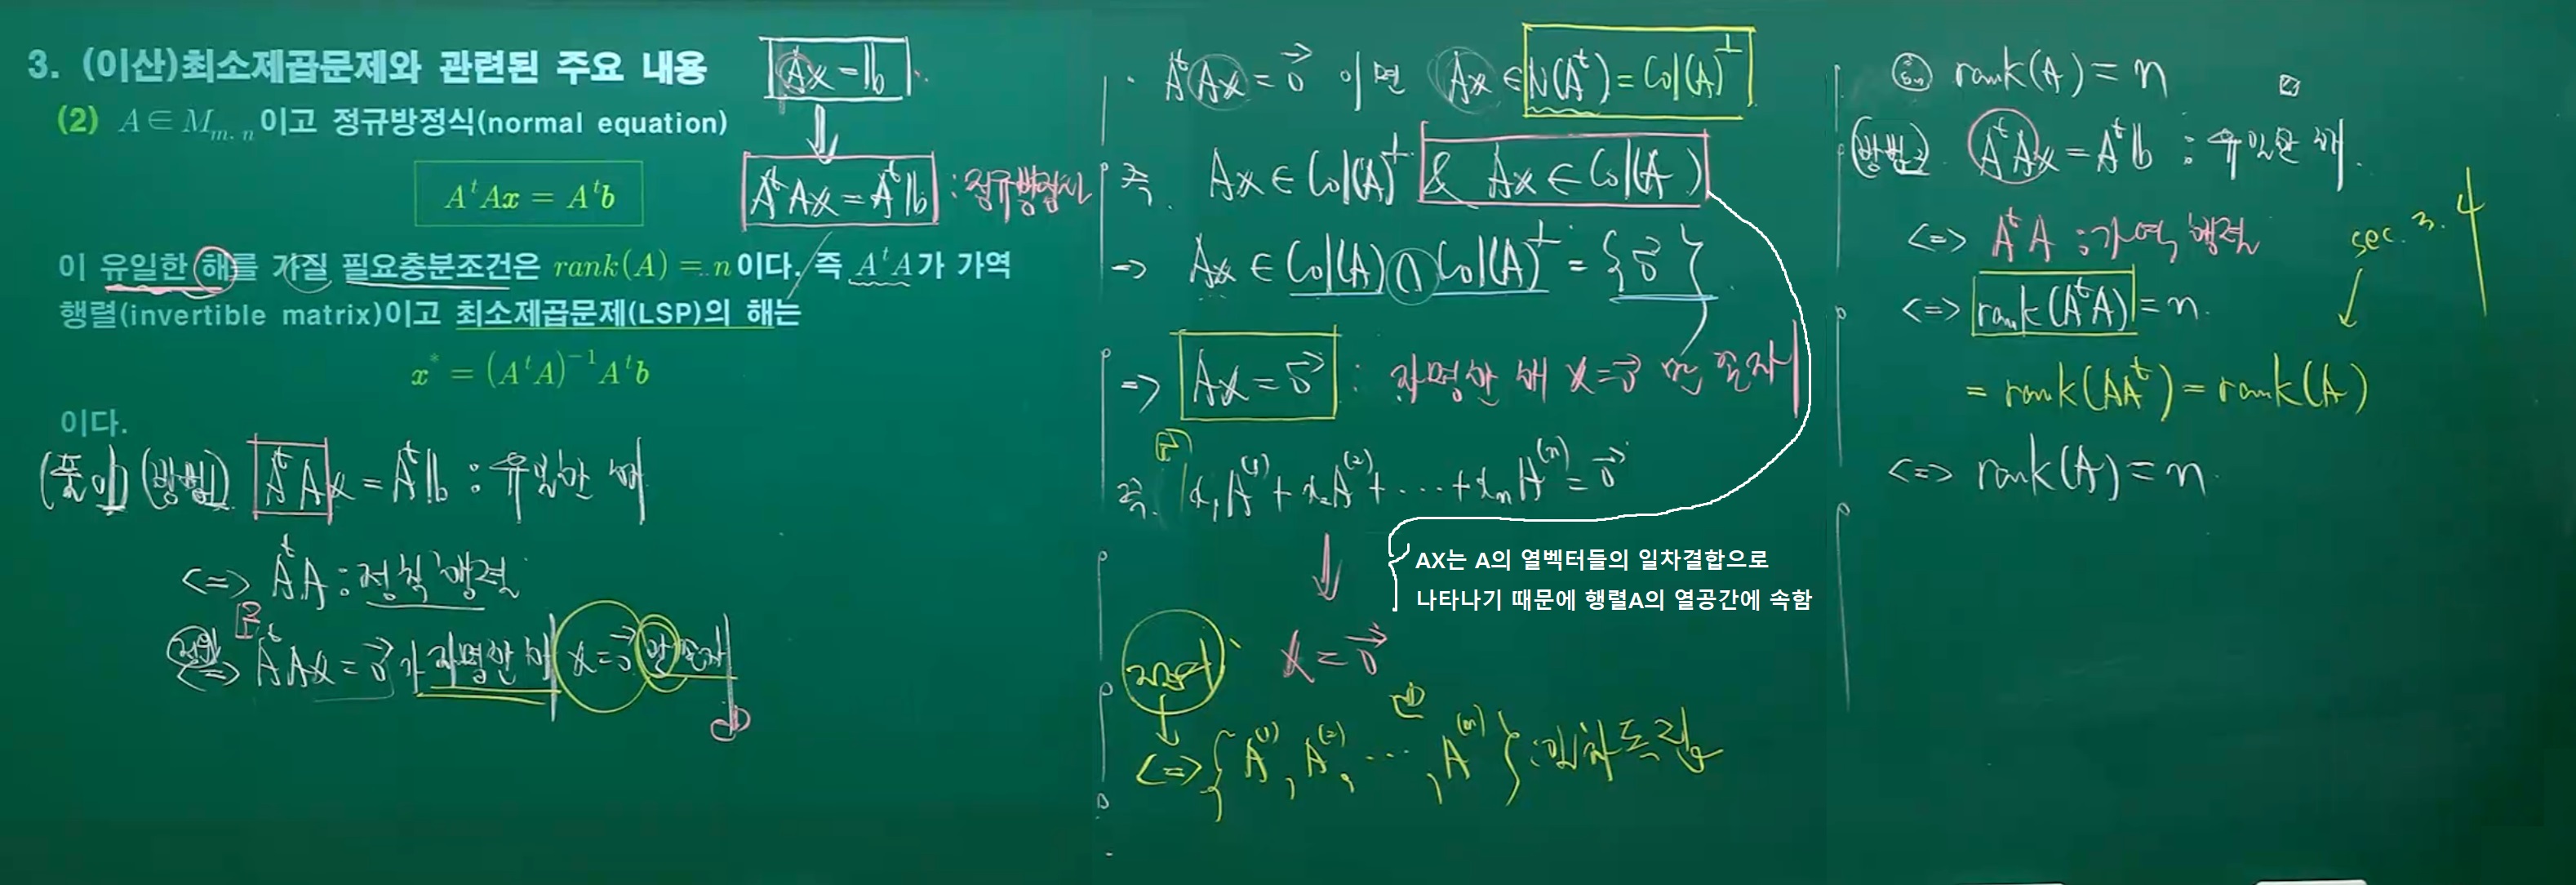 3. (이산)최소제곱문제와 관련된 주요 내용
Ax = b
(2) A ∈ M_{m, n} 이고 정규방정식(normal equation)
AᵗAx = Aᵗb
AᵗAx = Aᵗb : 정규방정식
이 유일한 해를 가질 필요충분조건은 rank(A) = n 이다. 즉 AᵗA가 가역
행렬(invertible matrix)이고 최소제곱문제(LSP)의 해는
x* = (AᵗA)⁻¹Aᵗb
이다.
(풀이) (방법1) AᵗAx = Aᵗb : 유일한 해
<=> AᵗA : 정칙행렬
<=> AᵗAx = 0⃗ 가 자명한 해 x = 0⃗ 만 존재
· AᵗAx = 0⃗ 이면 Ax ∈ N(Aᵗ) = Col(A)^⊥
즉. Ax ∈ Col(A)^⊥ & Ax ∈ Col(A)
=> Ax ∈ Col(A) ∩ Col(A)^⊥ = {0⃗}
=> Ax = 0⃗ : 자명한 해 x = 0⃗ 만 존재
즉. x₁A⁽¹⁾ + x₂A⁽²⁾ + ⋯ + xₙA⁽ⁿ⁾ = 0⃗
↓
AX는 A의 열벡터들의 일차결합으로
나타나기 때문에 행렬A의 열공간에 속함
x = 0⃗
<=> {A⁽¹⁾, A⁽²⁾, ⋯, A⁽ⁿ⁾} : 일차독립
rank(A) = n
(방법2) AᵗAx = Aᵗb : 유일한 해.
<=> AᵗA : 가역행렬
sec. 3. 4
<=> rank(AᵗA) = n.
= rank(AAᵗ) = rank(A)
<=> rank(A) = n.